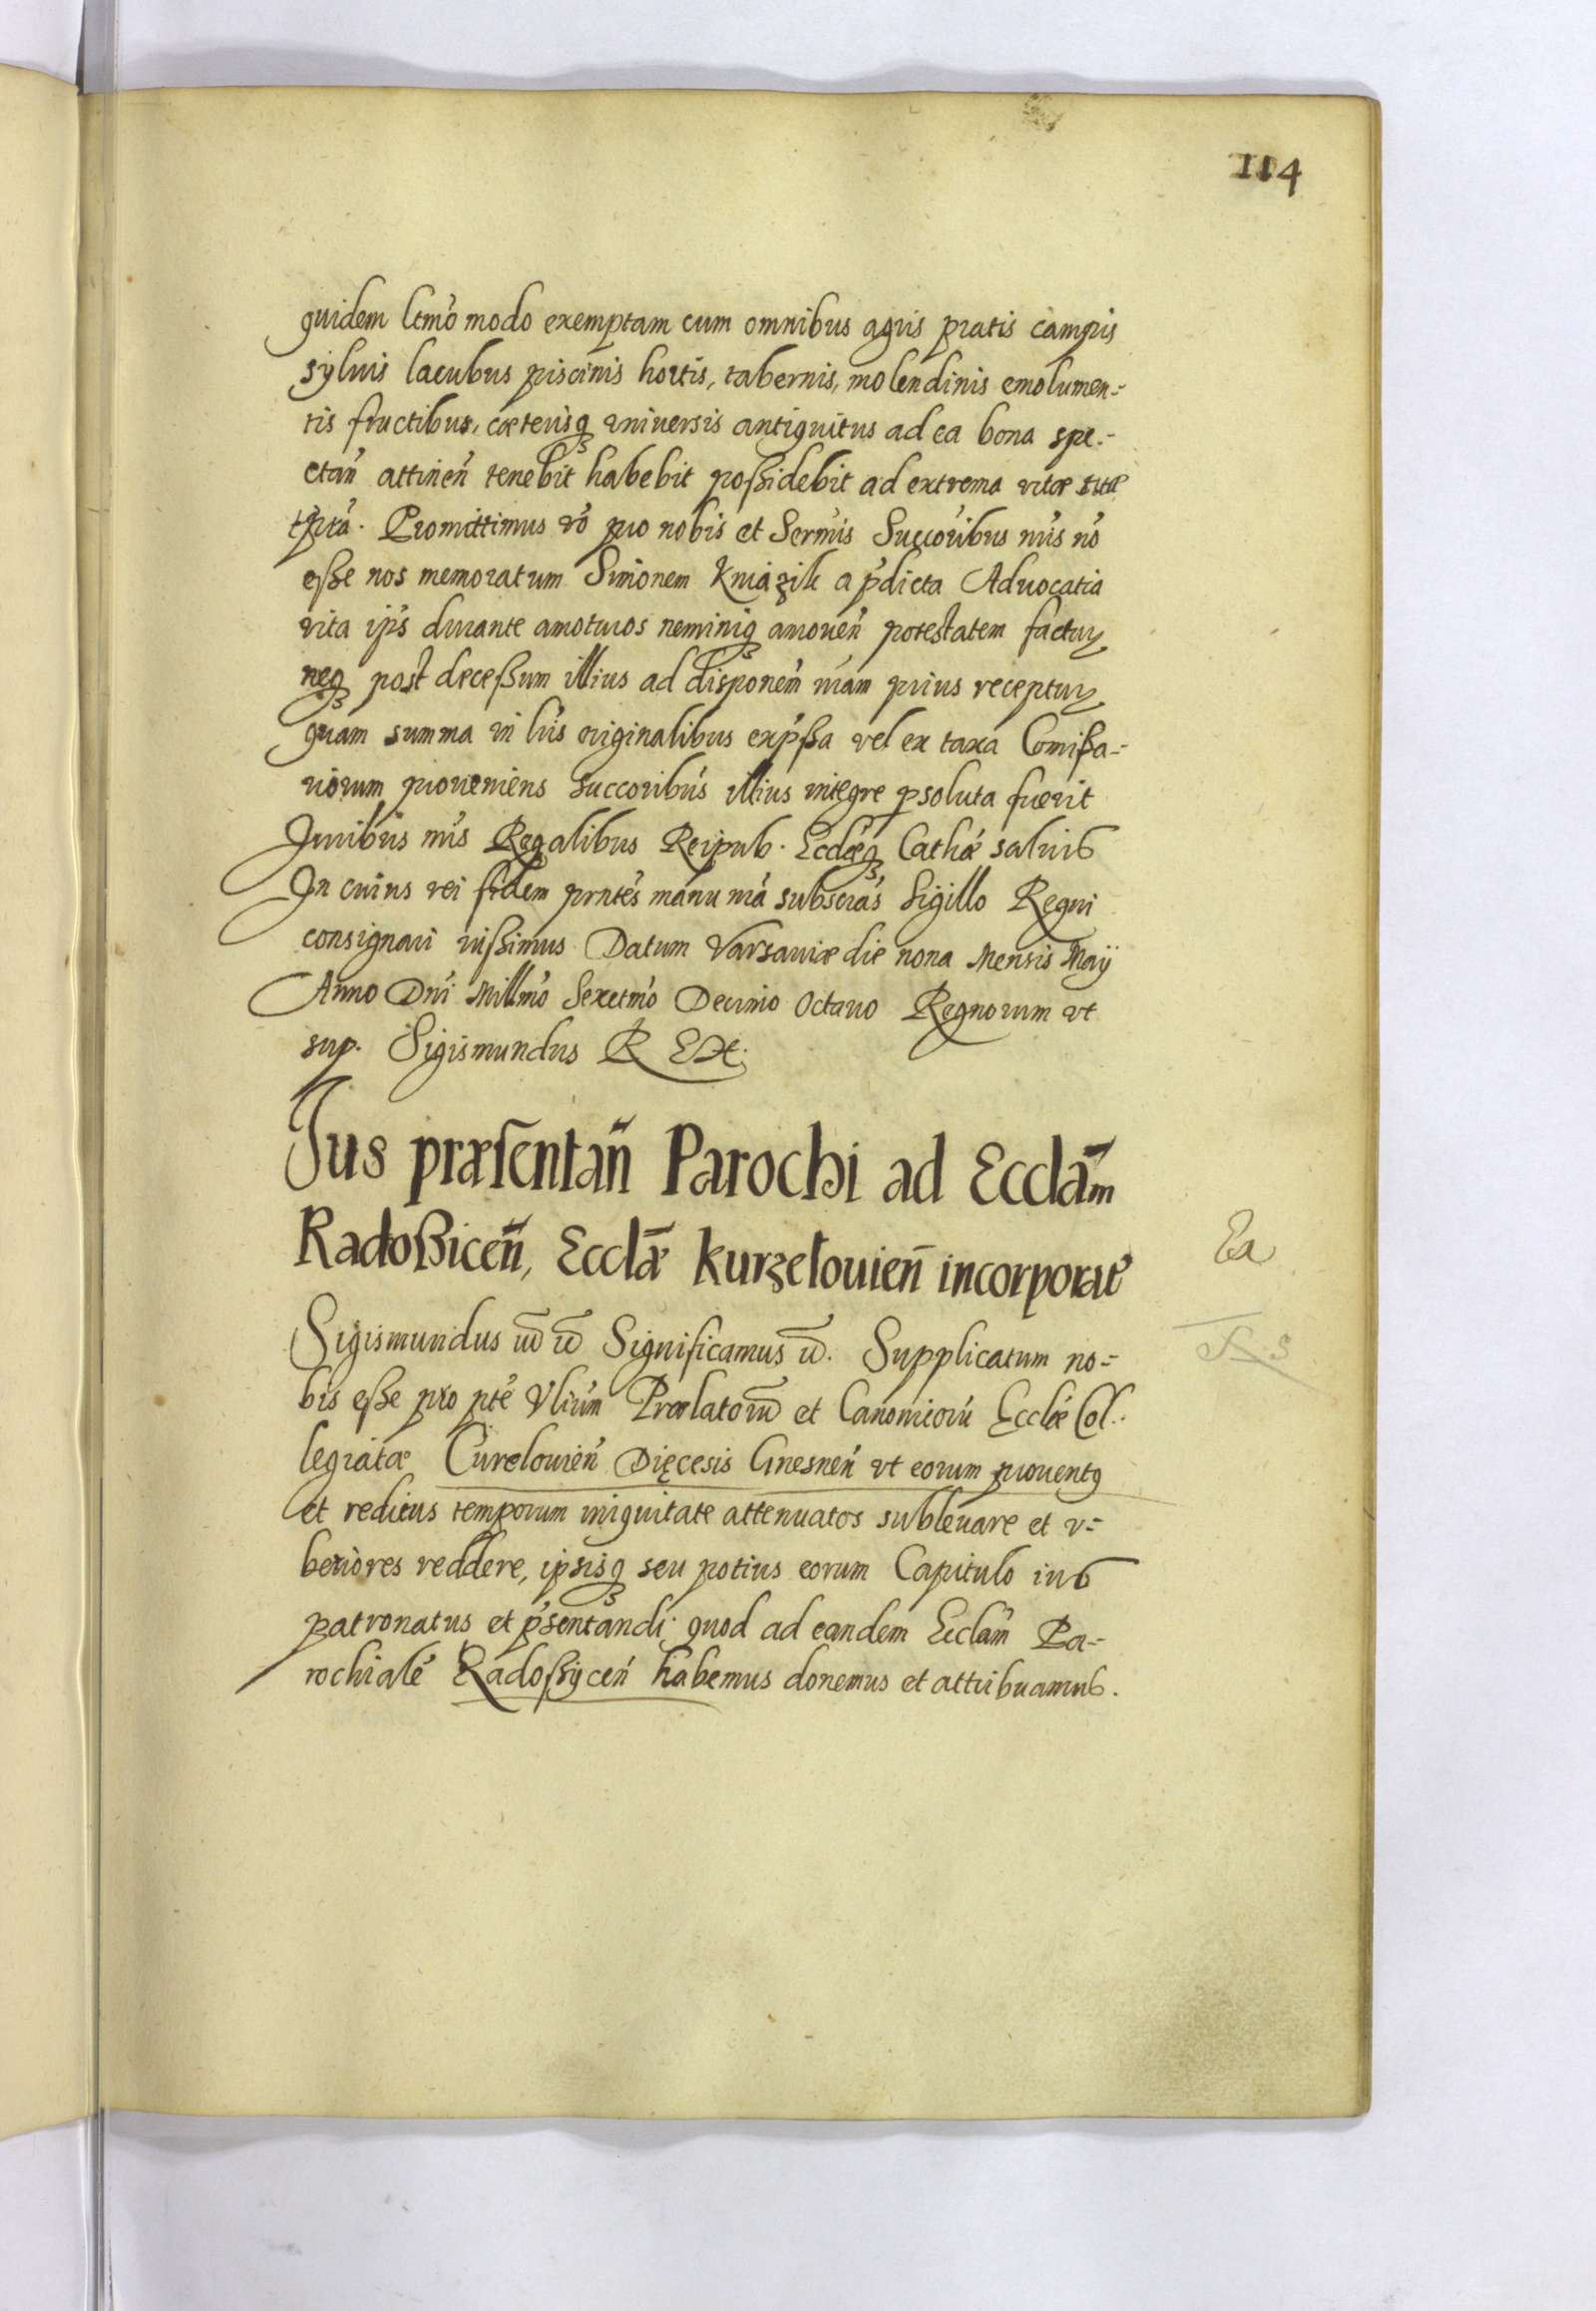 114
quidem ltmo modo exemptam cum omnibus agris pratis campis
sylvis lacubus piscinis hortis, tabernis, molendinis emolumen=
tis fructibus, cæterisq universis antiquitus ad ea bona spe=
ctan attinen tenebit habebit possidebit ad extrema vitæ suæ
tpra. Promittimus vo pro nobis et Sermis Succoribus nris no
esse nos memoratum Simonem Kniazik a pdicta Advocatia
vita ips durante amoturos neminiq amouen potestatem facturos
neq post decessum illius ad disponem nram prius recepturos
quam summa in lris originalibus expssa vel ex taxa Comissa=
riorum proveniens succoribus illius integre psoluta fuerit
Iuribus nris Regalibus Reipub. Ecclæq Cathæ salvis
In cuius rei fidem prntes manu nra subscras Sigillo Regni
consignari iussimus Datum Varsaviæ die nona Mensis Maÿ
Anno Dni Millmo Sexctmo Decimo Octavo Regnorum vt
sup. Sigismundus R Ext.
Ius præsentan Parochi ad Ecclam
Radossicen, Ecclæ Kurzelouien incorporatæ
Sigismundus etc etc Significamus etc. Supplicatum no=
bis esse pro pte Vlium Prælatorum et Canonicoru Ecclæ Col.
legiatæ Curelouien Diecesis Gnesnen vt eorum prouentq
et reditus temporum iniquitate attenuatos subleuare et v=
beriores reddere, ipsisq seu potius eorum Capitulo ius
patronatus et psentandi quod ad eandem Ecclam Pa=
rochiale Radossycen habemus donemus et attribuamus.
Ea